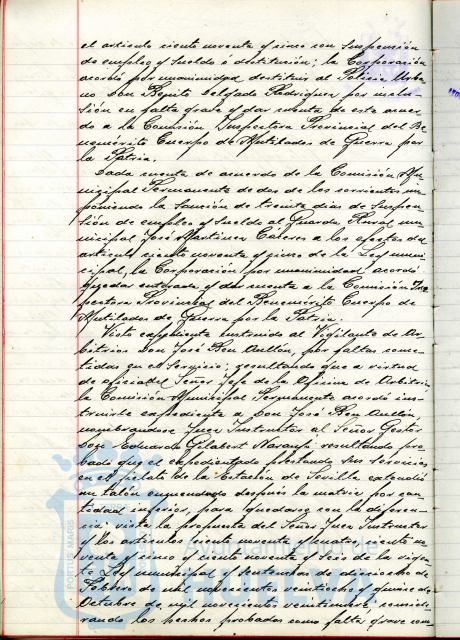 el artículo ciento noventa y cinco con suspensión
de empleo y sueldo ó destitución; la Corporación
acordó por unanimidad destituir al Policia Urba-
no Don Benito Delgado Rodriguez por
sión en falta grave y dar cuenta de este acuer-
do a la Comisión Inspectora Provincial del Be-
nemérito Cuerpo de Mutilados de Guerra por
la Patria.
Dada cuenta de acuerdo de la Comisión Mu-
nicipal Permanente de dos de los corrientes im-
poniendo la sanción de treinta dias de suspen-
sión de empleo y sueldo al Guarda Rural mu-
nicipal José Martinez Cáceres a los efectos del
artículo ciento noventa y cinco de la Ley muni-
cipal, la Corporación por unanimidad acordó
quedar enterada y dar cuenta a la Comisión Ins-
pectora Provincial del Benemérito Cuerpo de
Mutilados de Guerra por la Patria.
Visto expediente instruido al Vigilante de Ar-
bitrios Don José Ron Aullón, por faltas come-
tidas en el servicio; resultando que a virtud
de oficio del Señor Jefe de la Oficina de Arbitrios
la Comisión Municipal Permanente acordó ins-
truirle expediente a Don José Ron Aullón,
nombrandose Juez Instructor al Señor Gestor
Don Eduardo Gilabert Naranjo resultando pro-
bado que el expedientado prestando sus servicios
en el fielato de la Estación de Sevilla extendió
un talón enmendado después la matriz por can-
tidad inferior, para quedarse con la diferen-
cia: vista la propuesta del Señor Juez Instructor
y los artículos ciento noventa y cuatro, ciento no-
venta y cinco y ciento noventa y seis de la vigen-
te Ley municipal y sentencias de dieciocho de
Febrero de mil novecientos veintiocho y quince de
Octubre de mil novecientos veintinueve, conside-
rando los hechos probados como falta grave com-
Ayuntamiento de
HUELVA
PORTUS MARIS